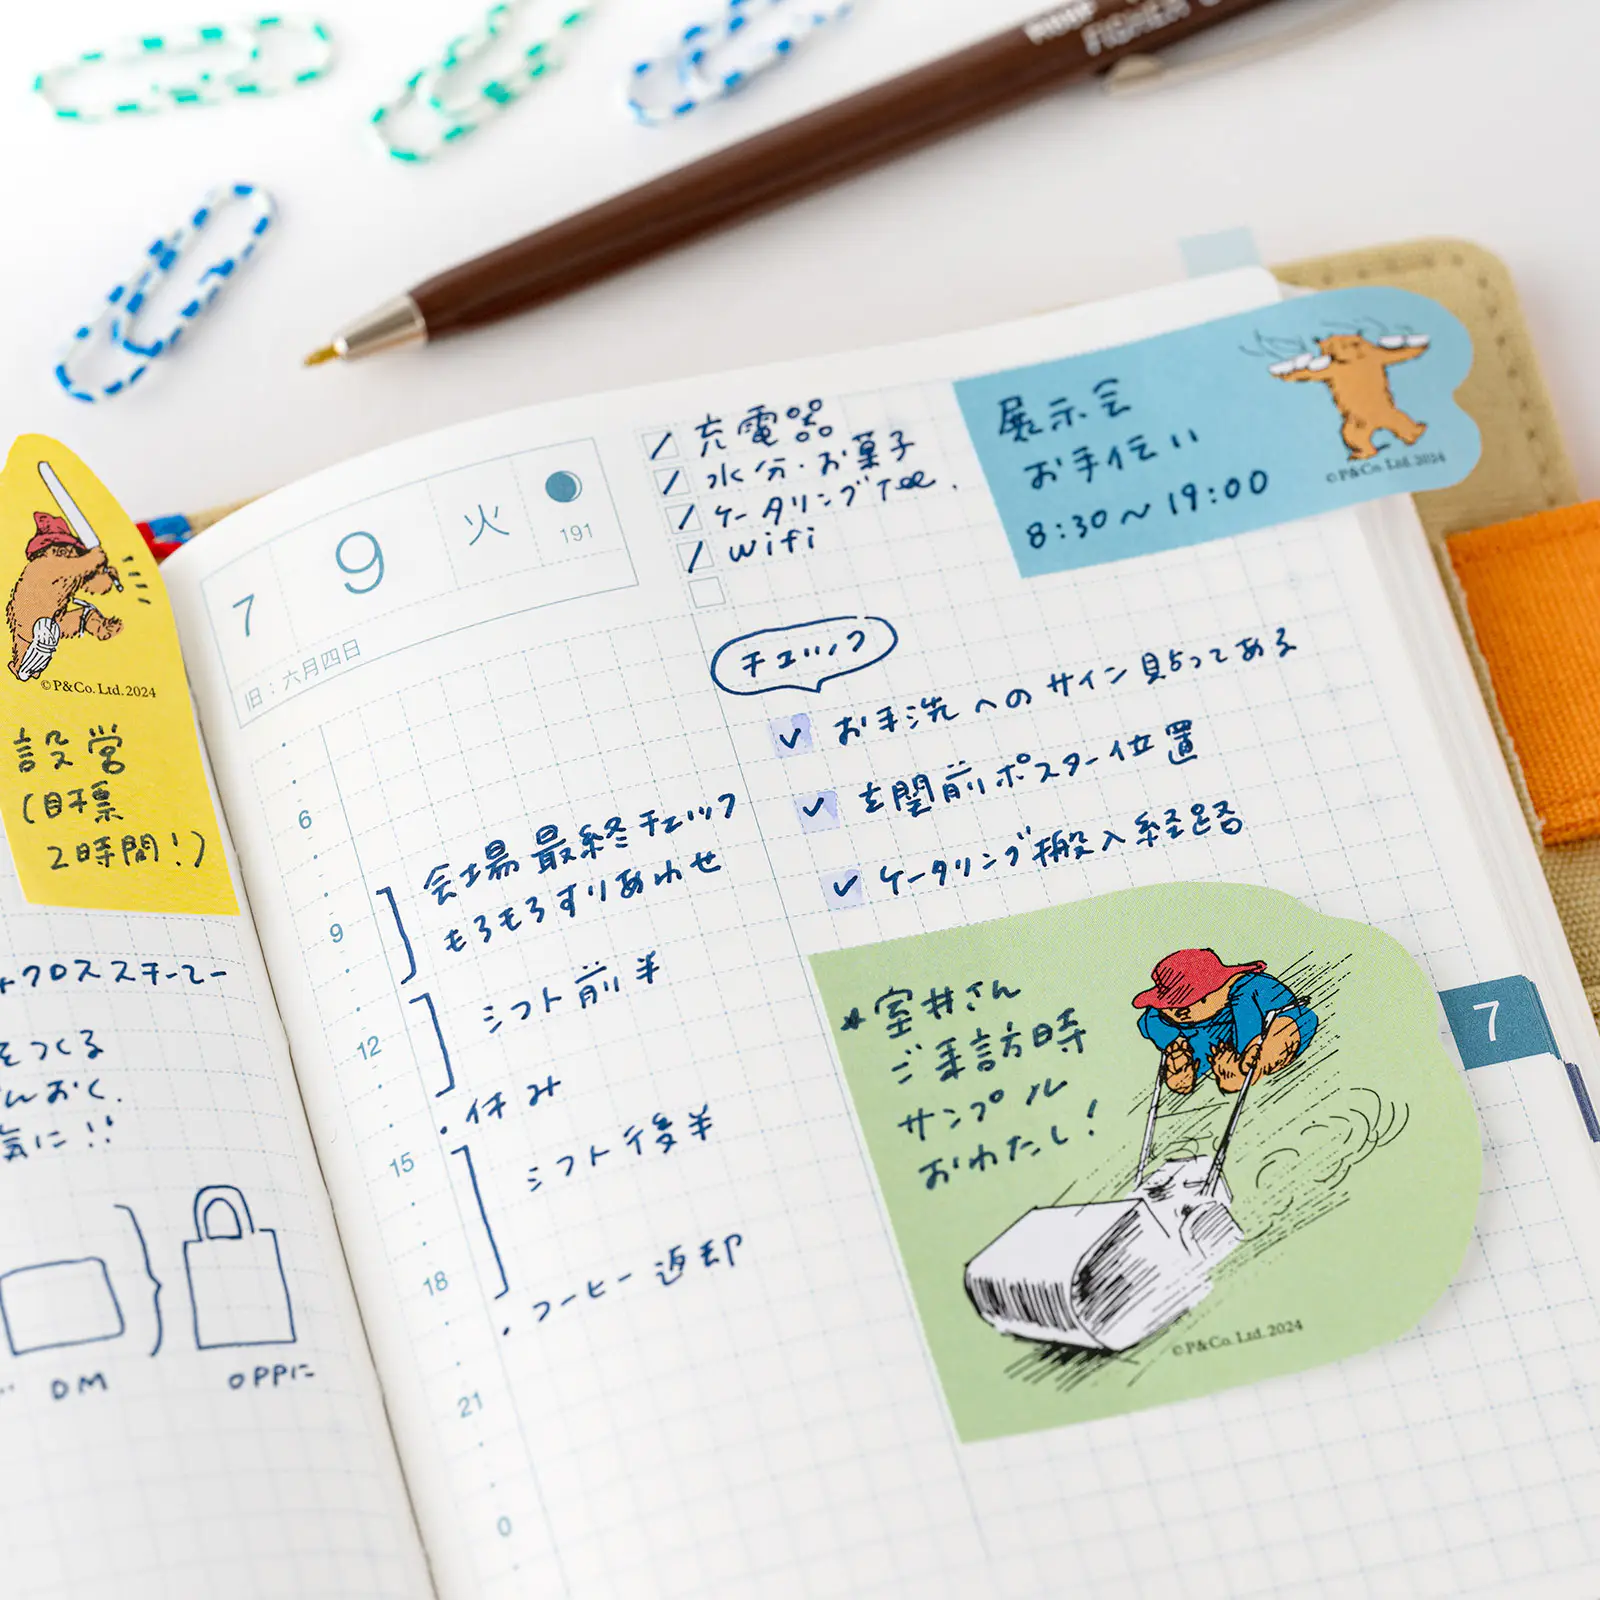 FISHER
©P&Co. Ltd. 2024
設営
(目標
2時間!)
クロススチーマー
をつくる
んおく.
気に!!
DM
OPPに
7
9
火
191
旧:六月四日
充電器
水分・お菓子
ケータリングTEL.
wifi
展示会
お手伝い
8:30〜19:00
©P&Co. Ltd. 2024
チェック
お手洗へのサイン貼ってある
玄関前ポスター位置
ケータリング搬入経路
6
9
12
15
18
21
0
会場最終チェック
もろもろすりあわせ
シフト前半
・休み
シフト後半
・コーヒー返却
*室井さん
ご来訪時
サンプル
おわたし!
©P&Co. Ltd. 2024
7